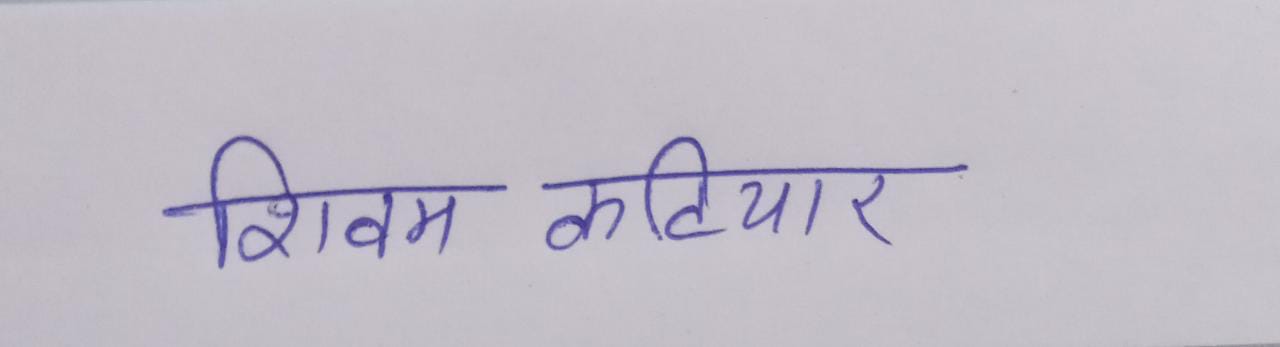 शिवम कटियार